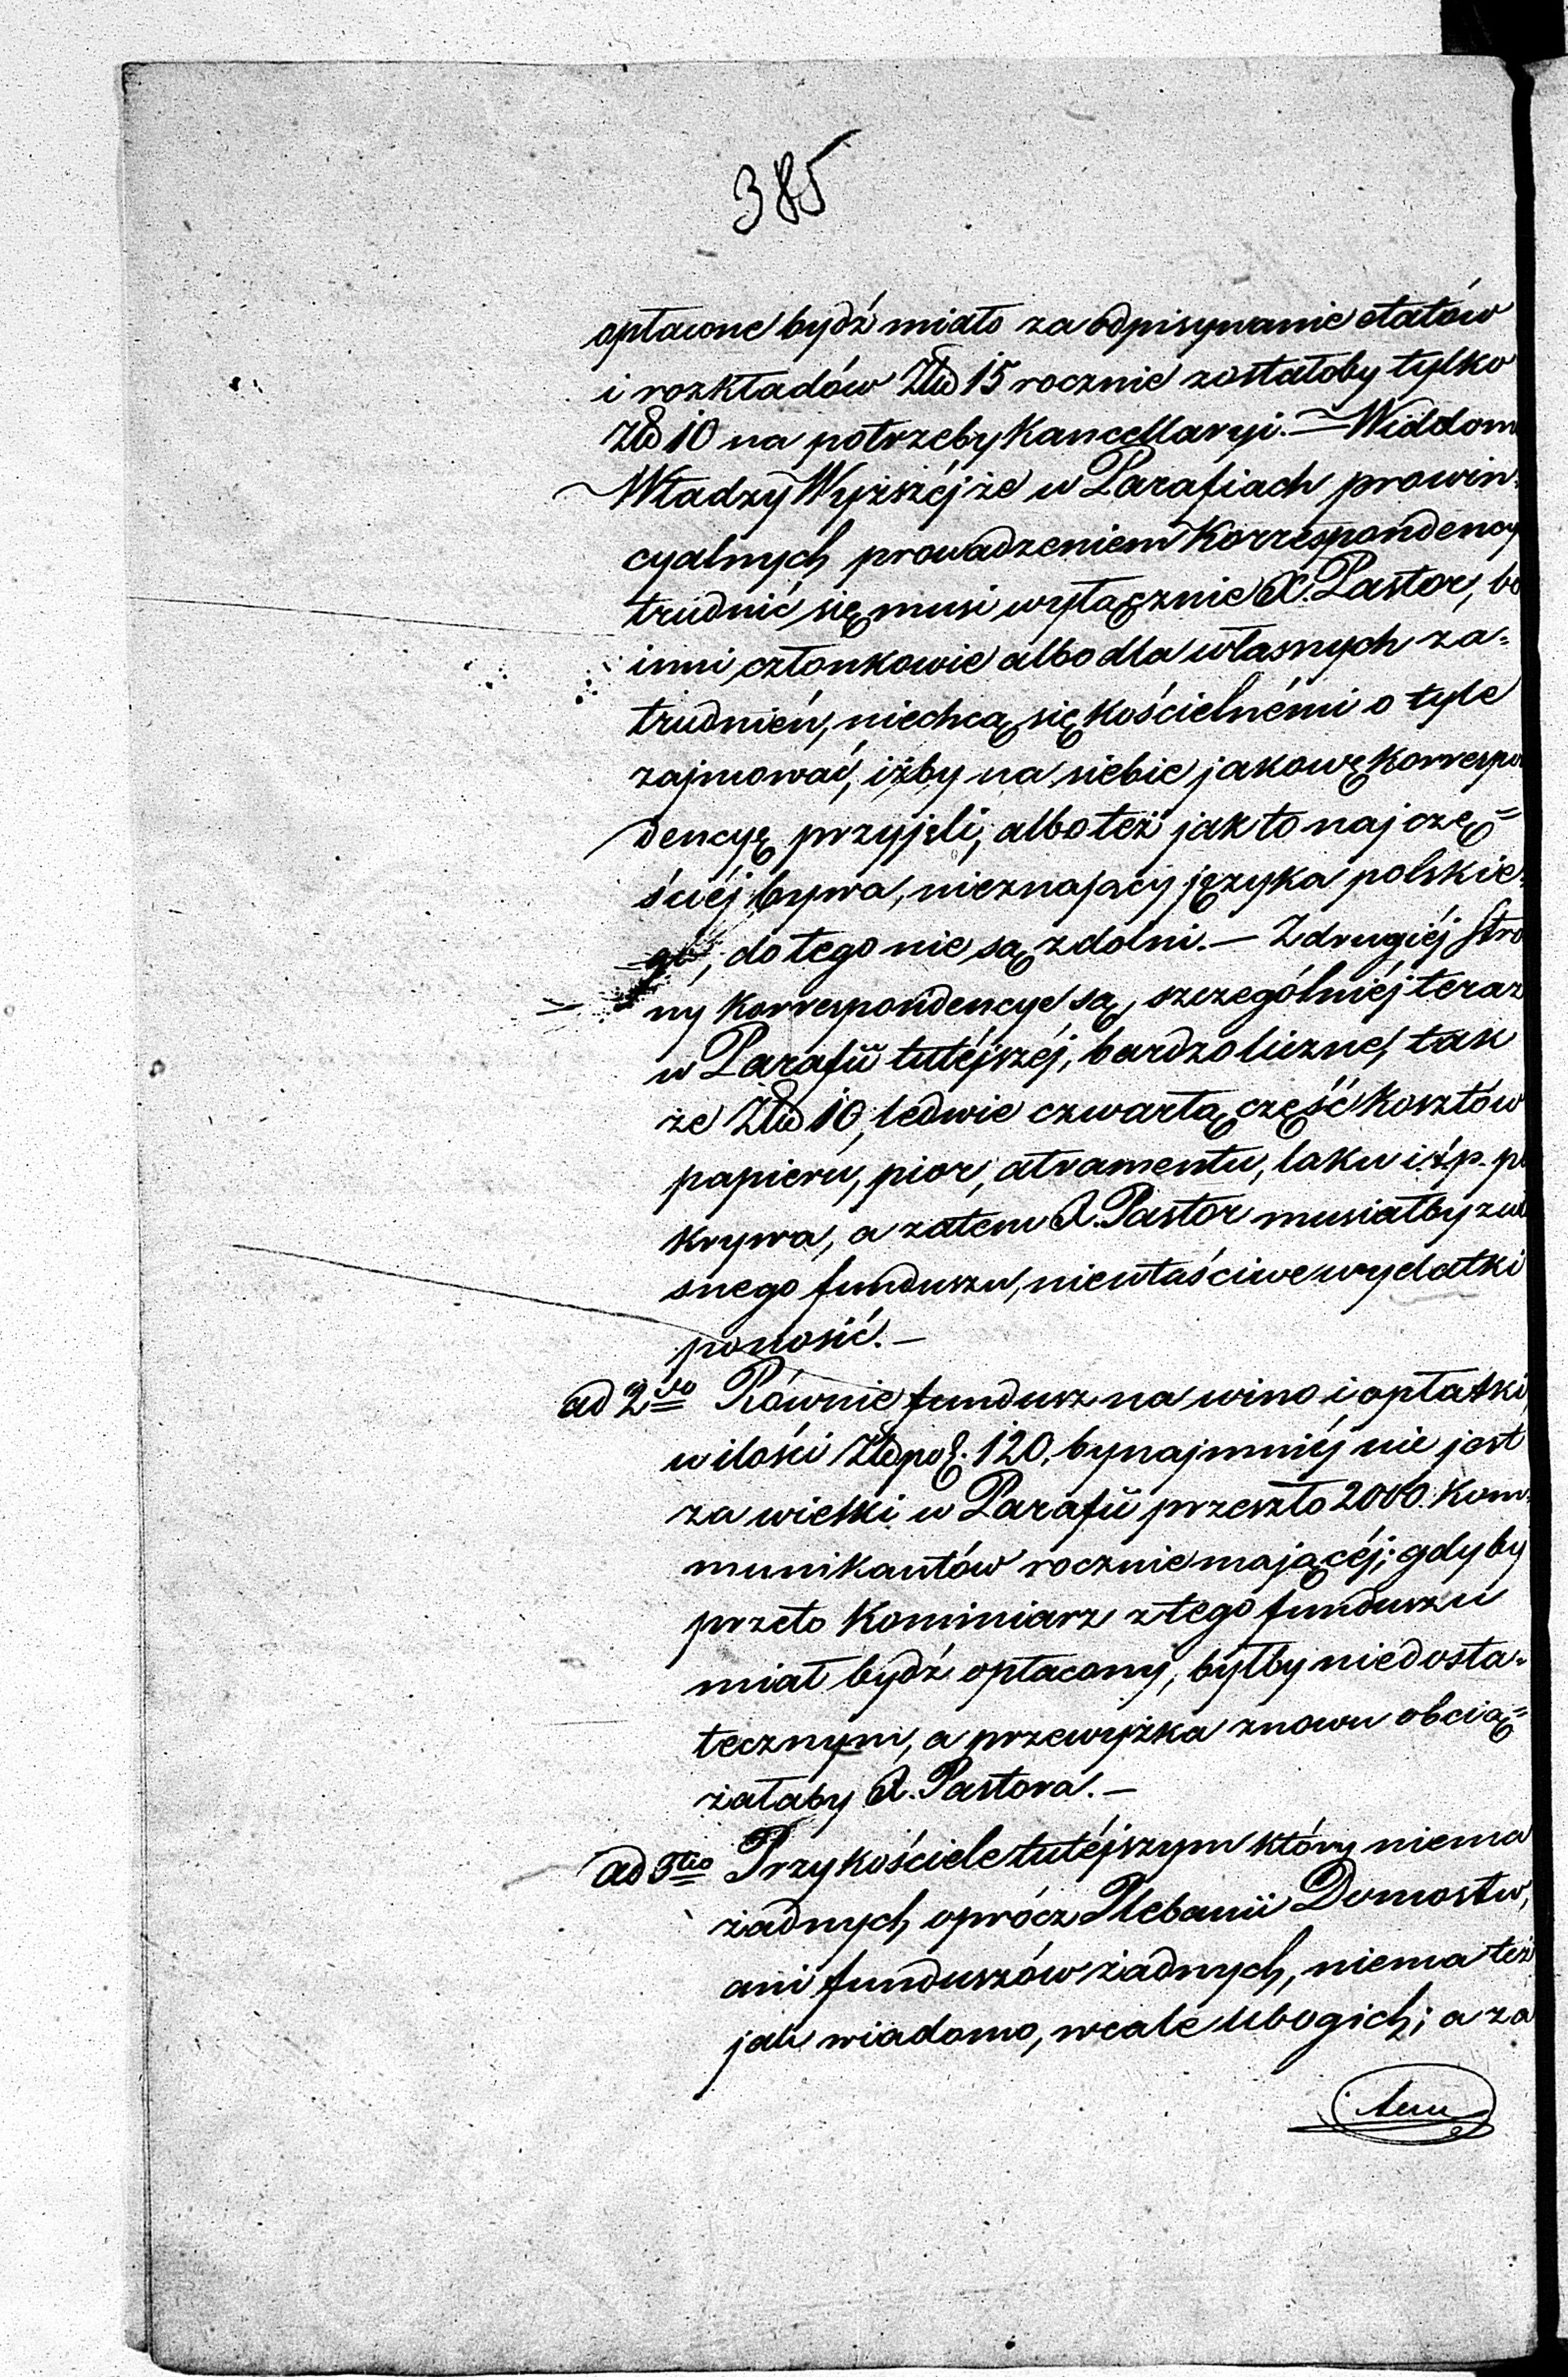 385
opłacone bydź miało za odpisywanie etatów
i rozkładów Złp 15 rocznie zostałoby tylko
Złp 10 na potrzeby Kancellaryi. — Widdom
Władzy Wyższéj że w Parafiach prowin-
cyalnych prowadzeniem Korrespondency
trudnić się musi wyłącznie X. Pastor, bo
inni członkowie albo dla własnych za-
trudnień, niechcą się kościelnémi o tyle
zajmować, iżby na siebie jakowę korrespo
dencyę przyjęli, albo téż jak to najczę-
ściéj bywa, nieznający języka polskie-
go, do tego nie są zdolni. — Z drugiéj stro
ny korrespondencye są, szczególniéj teraz
w Parafii tutéjszéj, bardzo liczne, tak
że Złp 10, ledwie czwartą część kosztów
papieru, pior, atramentu, laku i t.p. po
krywa, a zatem X. Pastor musiałby z wł
snego funduszu, niewłaściwe wydatki
ponosić. —
ad 2do Równie fundusz na wino i opłatki,
w ilości Złp pol. 120, bynajmniéj nie jest
za wielki w Parafii przeszło 2000 Kom-
munikantów rocznie mającéj; gdyby
przeto Kominiarz z tego funduszu
miał bydź opłacony, byłby niedosta-
tecznym, a przewyżka znowu obcią-
żałaby X. Pastora. —
ad 3tio Przy kościele tutéjszym który niema
żadnych oprócz Plebanii Domostw,
ani funduszów żadnych, niema téż
jak wiadomo, wcale ubogich; a za